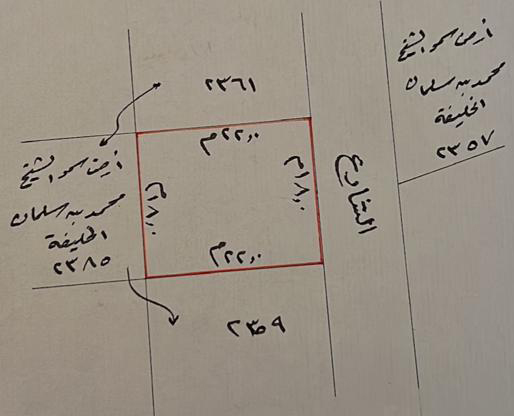 ٢٣٦١
أرض سمو الشيخ
محمد بن سلمان
الخليفة
٢٣٥٧
٢٢٫٠٠م
أرض سمو الشيخ
محمد بن سلمان
الخليفة
٢٣٨٥
١٨٫٠٠م
١٨٫٠٠م
الشارع
٢٢٫٠٠م
٢٣٥٩